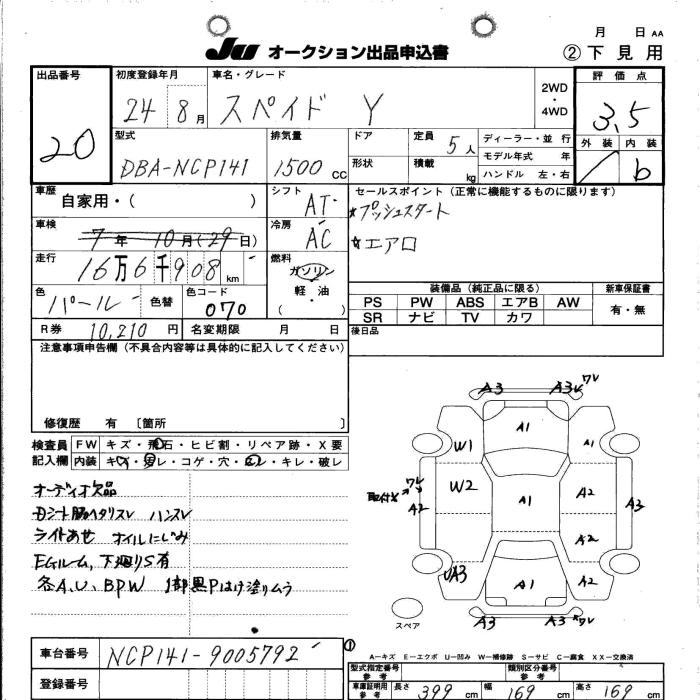 月 日 AA
JU オークション出品申込書 ②下見用
出品番号 20
初度登録年月 24 8月
車名・グレード スペイド Y
2WD・4WD
評価点 3.5
外装 内装 b
型式 DBA-NCP141
排気量 1500 CC
ドア 定員 5人
形状 積載 kg
ディーラー・並行
モデル年式 年
ハンドル 左・右
車歴 自家用・( )
シフト AT
セールスポイント(正常に機能するものに限ります)
★プッシュスタート
☆エアロ
車検 7年 10月(29日)
冷房 AC
走行 16万6千908km
燃料 ガソリン 軽・油 ( )
色 パール 色替 色コード 070
装備品(純正品に限る) 新車保証書
PS PW ABS エアB AW 有・無
SR ナビ TV カワ
R券 10,210円 名変期限 月 日
後日品
注意事項申告欄(不具合内容等は具体的に記入してください)
修復歴 有 〔箇所 〕
検査員記入欄
FW キズ・飛石・ヒビ割・リペア跡・X要
内装 キズ・汚レ・コゲ・穴・スレ・キレ・破レ
オーディオ欠品
ハンスレ
ライトあせ オイルにじみ
EGルーム、下廻りS有
各A、U、BPW 1部黒Pはげ塗りムラ
A3 A3 ワレ
A1
W1 A1
W2 A1 A2
取付× ワレ A2 A3
A2
UA3 A1 A2
A3 A3 ワレ
スペア
A-キズ E-エクボ U-凹み W-補修跡 S-サビ C-腐食 XX-交換済
車台番号 NCP141-9005792
登録番号
①
型式指定番号 参考 類別区分番号 参考
車庫証明用 参考 長さ 399 cm 幅 169 cm 高さ 169 cm